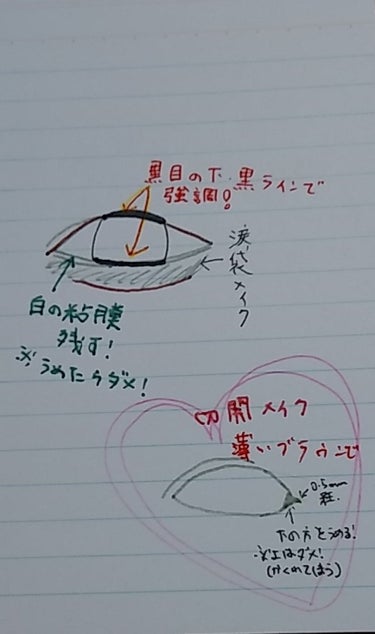 黒目の下・黒ラインで
強調!
涙袋メイク
白の粘膜
残す!
※うめたらダメ!
切開メイク
薄いブラウンで
0.5mm
下の方をうめる!
※上はダメ!